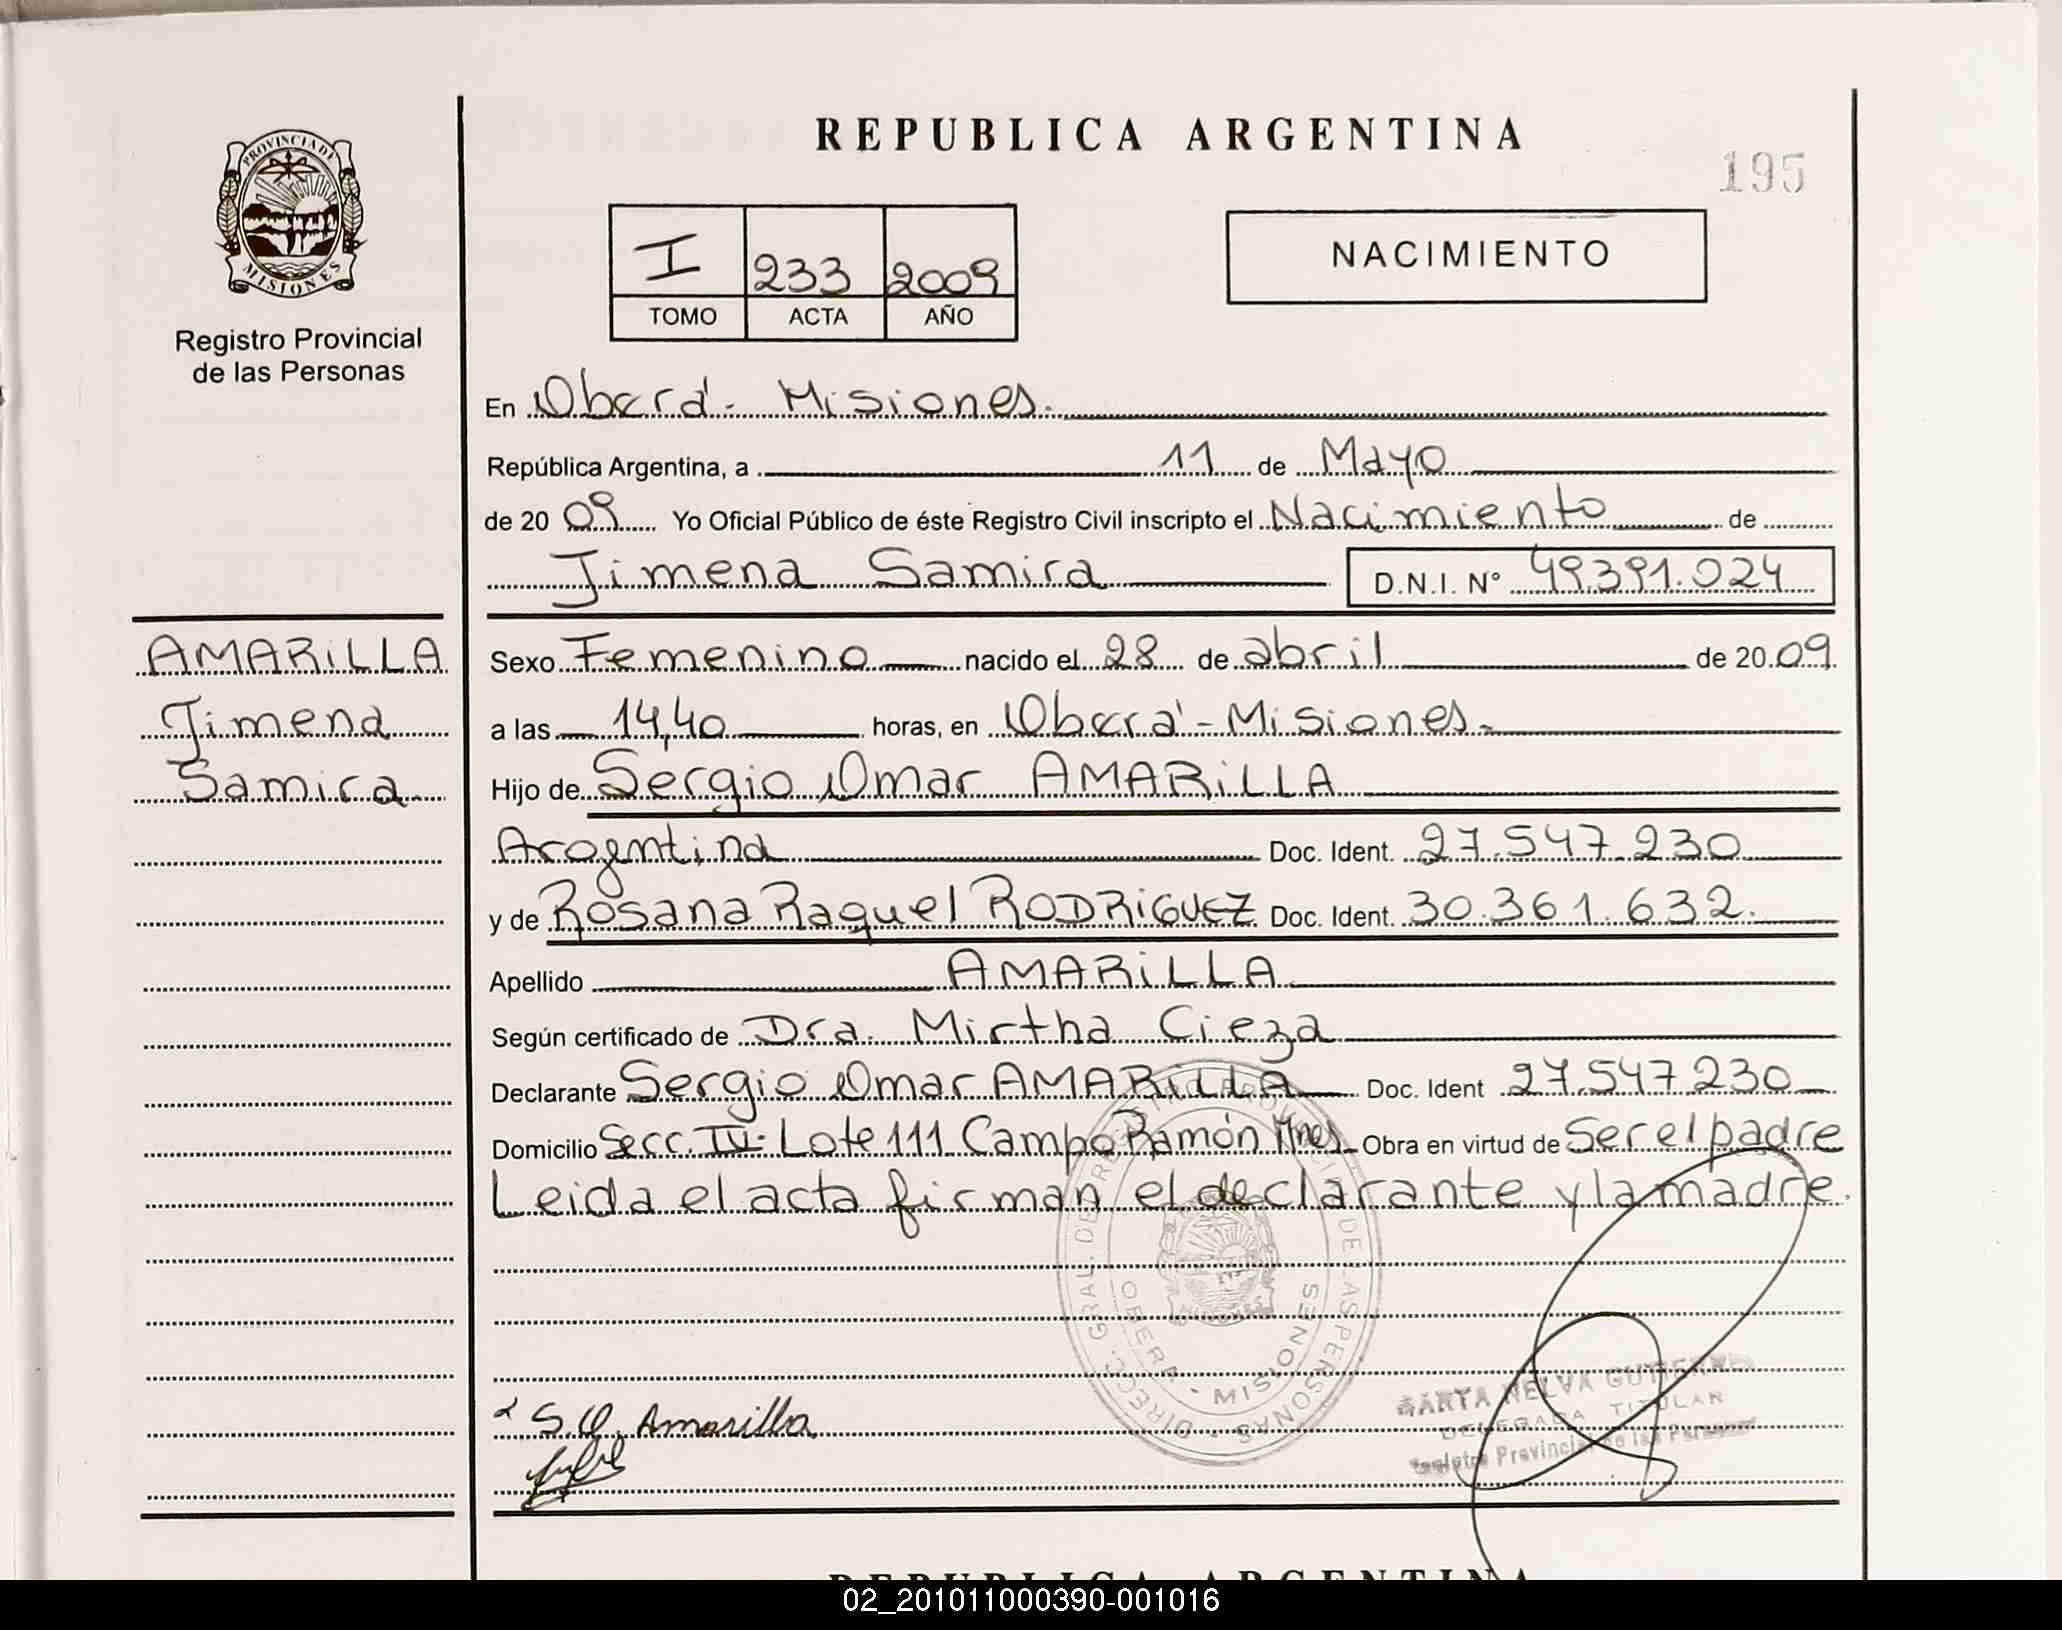 REPUBLICA ARGENTINA
195
PROVINCIA DE
MISIONES
Registro Provincial
de las Personas
I 233 2009
TOMO ACTA AÑO
NACIMIENTO
En Oberá - Misiones.
República Argentina, a 11 de Mayo
de 20 09 Yo Oficial Público de éste Registro Civil inscripto el Nacimiento de
Jimena Samira D.N.I. N° 49.391.024
AMARiLLA
Jimena
Samira
Sexo Femenino nacido el 28 de abril de 20 09
a las 14,40 horas, en Oberá - Misiones.
Hijo de Sergio Omar AMARiLLA
Argentina Doc. Ident. 27.547.230
y de Rosana Raquel RODRiGUEZ Doc. Ident. 30.361.632.
Apellido AMARiLLA
Según certificado de Dra. Mirtha Cieza
Declarante Sergio Omar AMARiLLA Doc. Ident 27.547.230
Domicilio Secc. IV - Lote 111 Campo Ramón Mnes. Obra en virtud de Ser el padre
Leida el acta firman el declarante y la madre.
DIRECC. GRAL. DE DE LAS PERSONAS
OBERA - MISIONES
S.O. Amarilla
MARTA NELVA
DELEGADA TITULAR
Registro Provincial de las Personas
REPUBLICA ARGENTINA
02_201011000390-001016